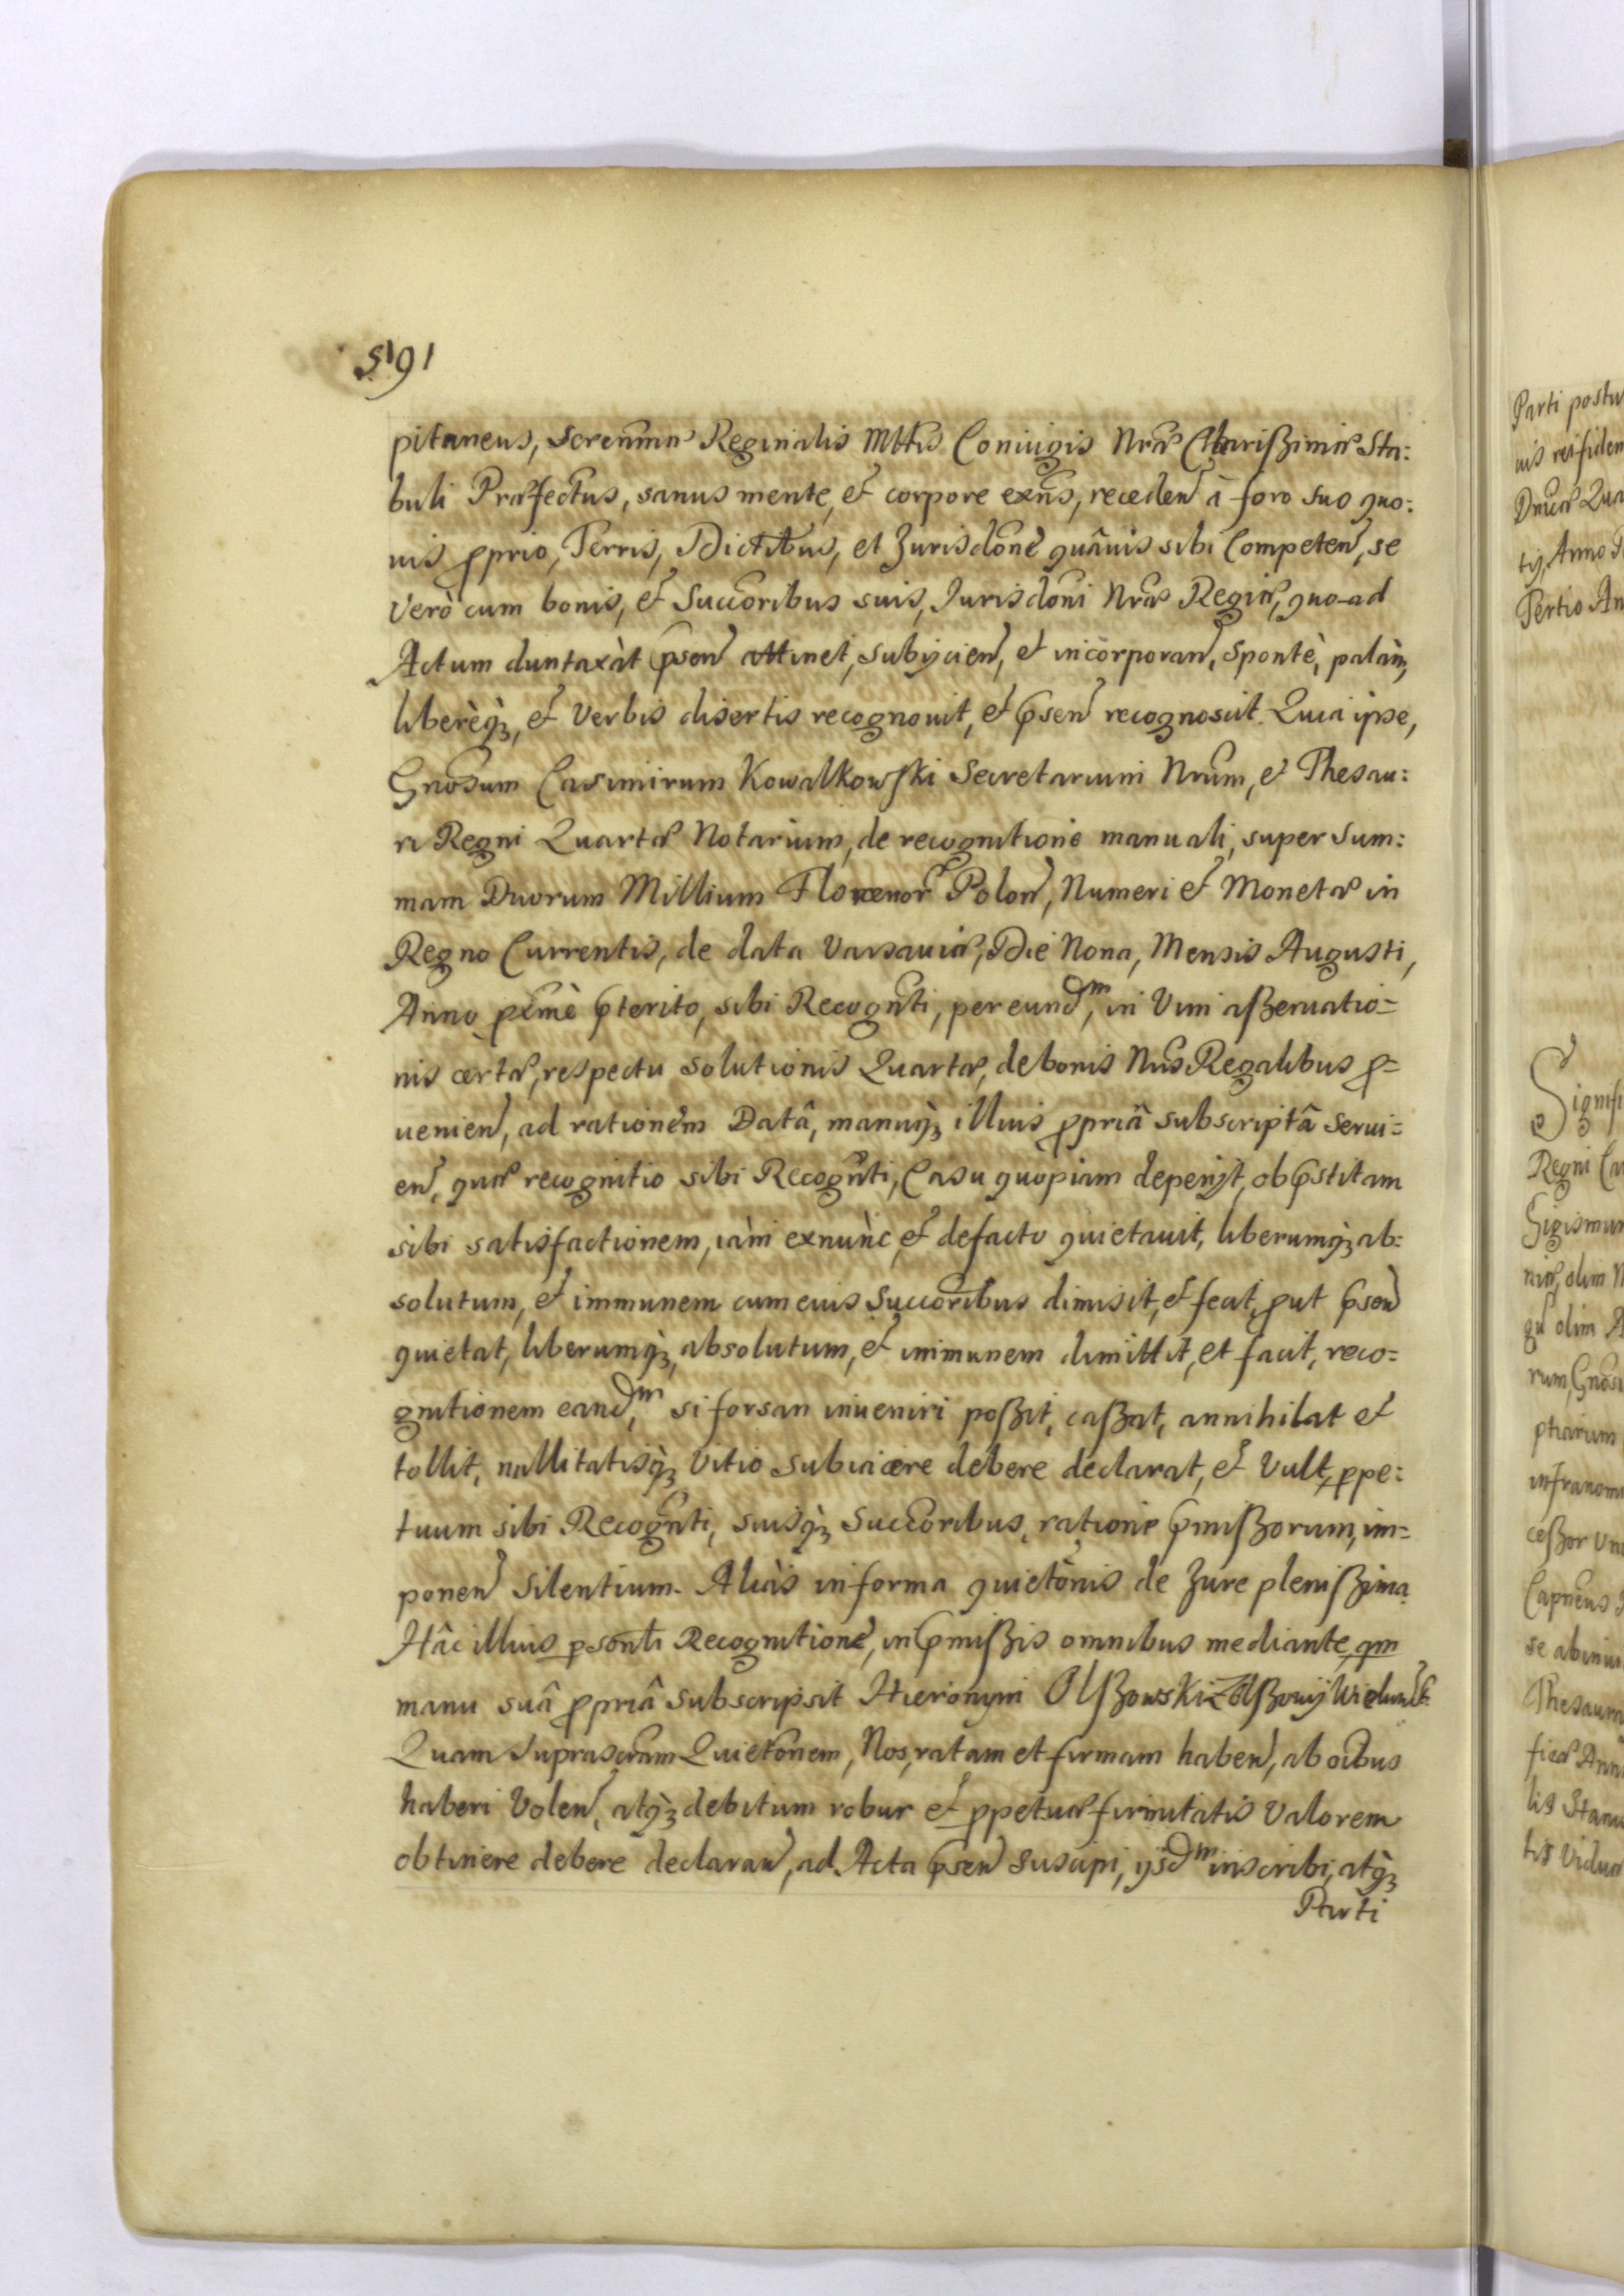 591
pitaneus, Serenmæ Reginalis Mttis Coniugis Nræ Charißimæ Sta:
buli Præfectus, sanus mente, et corpore exñs, receden à foro suo quo:
uis pprio, Terris, Dictibus, et Jurisdone quâuis sibi Competen, se
verò cum bonis, et Succoribus suis, Jurisdoni Nræ Regiæ, quo-ad
Actum duntaxàt psen attinet, subijcien, et incorporan, Spontè, palàm,
liberèq3, et Verbis disertis recognouit, et psen recognoscit. Quia ipse,
Gnosum Casimirum Kowalkowski Secretarium Nrum, et Thesau:
ri Regni Quartæ Notarium, de recognitione manuali, super Sum:
mam Duorum Millium Florenor Polon, Numeri et Monetæ in
Regno Currentis, de data Varsauiæ, Die Nona, Mensis Augusti,
Anno pxmè pterito, sibi Recognti, per eundm, in Vim aßeruatio=
nis certæ, respectu solutionis Quartæ, de bonis Nris Regalibus p=
uenien, ad rationem Datâ, manuq3 illius ppriâ subscriptâ serui=
en, quæ recognitio sibi Recognti, Casu quopiam deperijt, ob pstitam
sibi satisfactionem, iàm exnùnc, et defacto quietauit, liberumq3 ab:
solutum, et immunem cum eius Succoribus dimisit, et fecit, put psen
quietat, liberumq3, absolutum, et immunem dimittit, et facit, reco=
gnitionem eandm, si forsan inueniri poßit, caßat, annihilat et
tollit, nullitatisq3 Vitio subiacere debere declarat, et Vult, ppe:
tuum sibi Recognti, suisq3 Succoribus, ratione pmißorum, im=
ponen Silentium. Aliàs in forma quietonis de Jure plenißima.
Hâc illius psonli Recognitione, in pmißis omnibus mediante, qm
manu suâ ppriâ subscripsit Hieronym Olßowski z Olßowy Wielunc.
Quam suprascram Quietonem, Nos, ratam et firmam haben, ab oibus
haberi Volen, atq3 debitum robur et ppetuæ firmitatis Valorem
obtinere debere declaran, ad Acta psen suscipi, ijsdm inscribi, atq3
Parti
Parti postu
Tertio An
Signifi
Regni Ca
Sigismun
niæ, olim
olim
rum, Gnosi
ptiarum
infranom
ceßor
Capneus
se abinui
Thesaura
lis Stanis
tis Viduæ